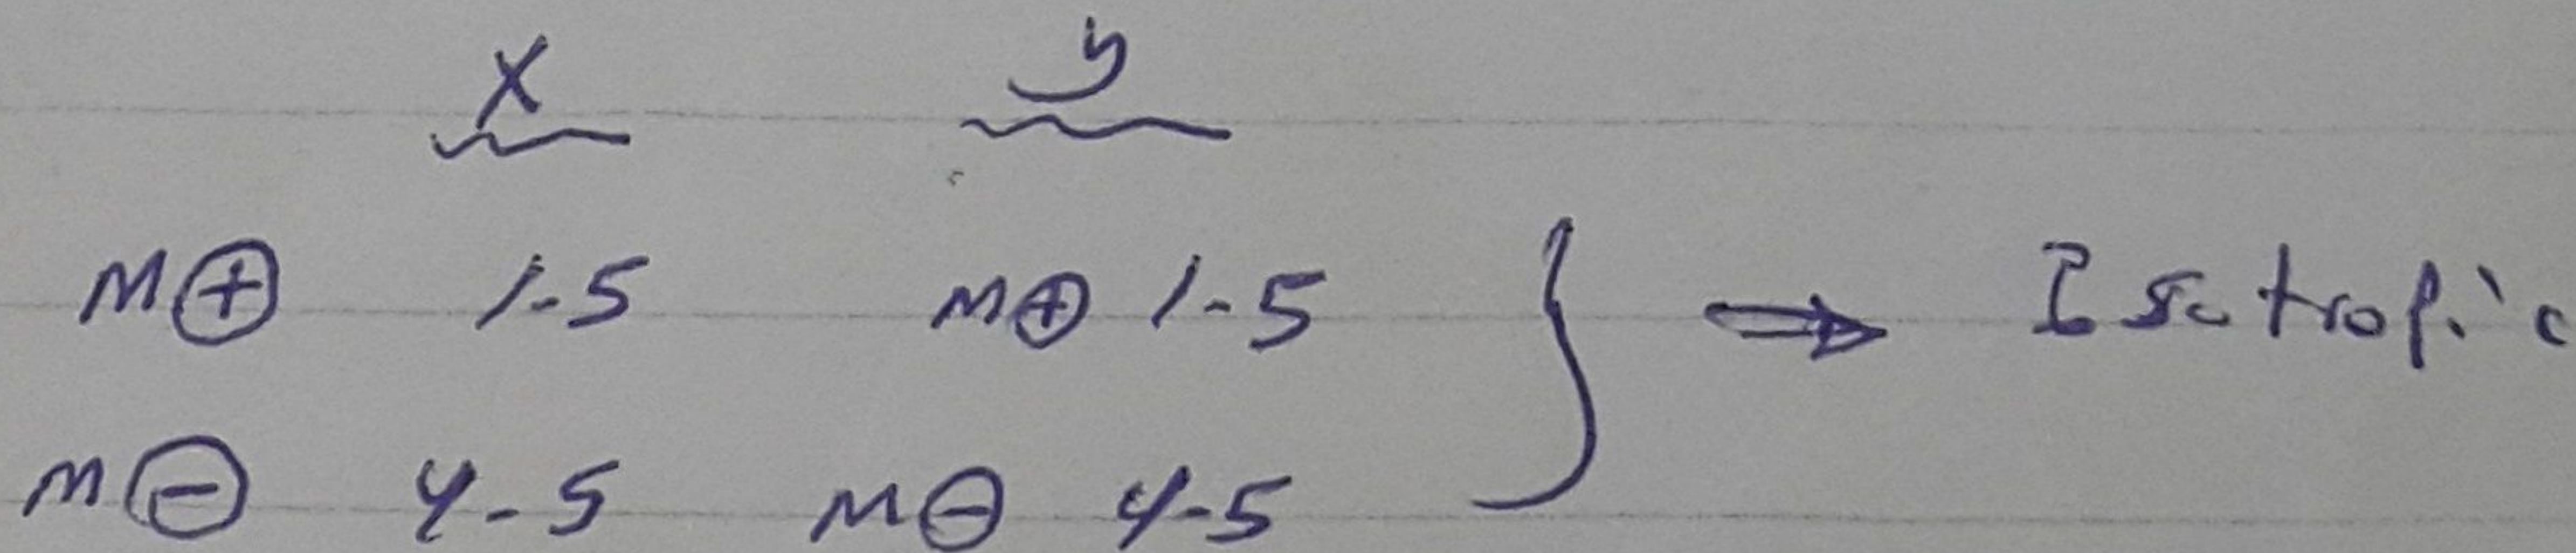 X y
M⊕ 1-5 M⊕ 1-5 } ⇒ Isotropic
M⊖ 4-5 M⊖ 4-5